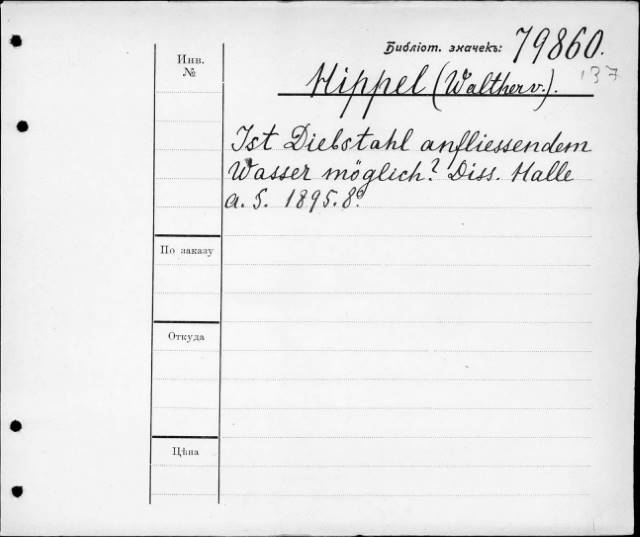 Библіот. значекъ: 79860.
137
Инв.
№
Hippel (Walther v.).
Ist Diebstahl an fliessendem
Wasser möglich? Diss. Halle
a. S. 1895. 8º
По заказу
Откуда
Цѣна